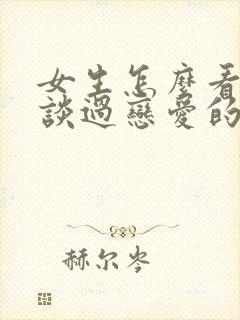 女生怎麼看
談過戀愛的
赫尔岑